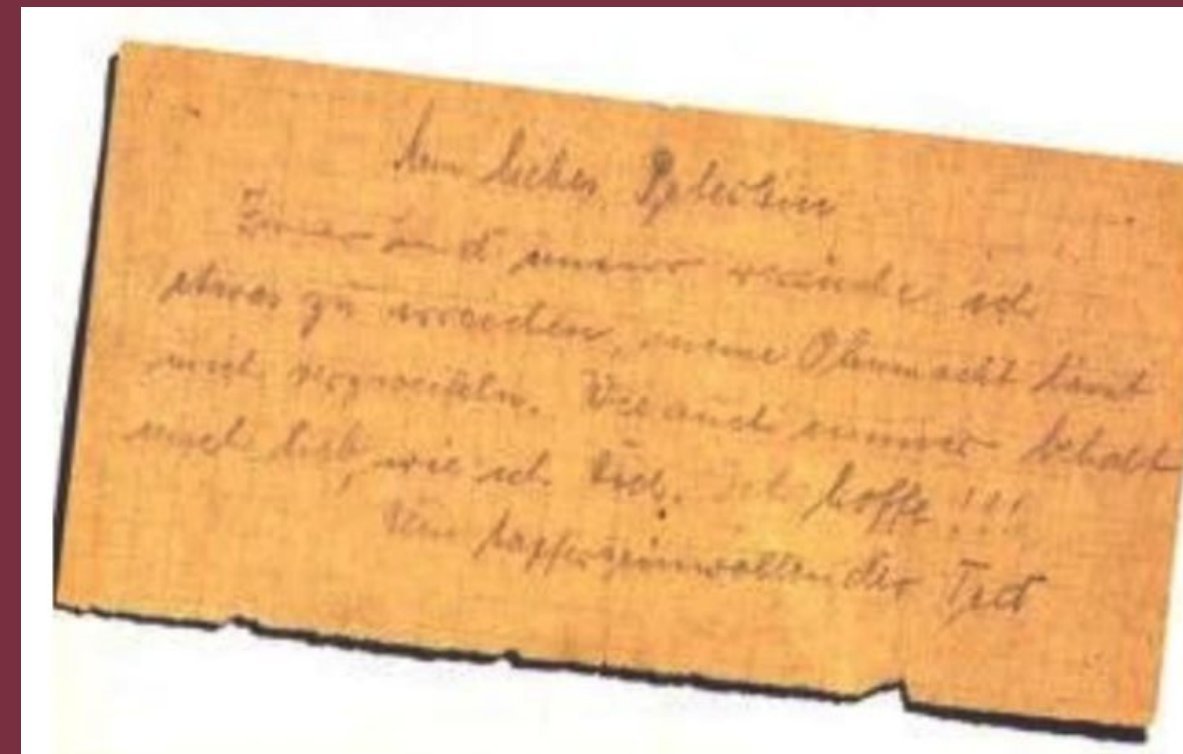 Mein lieber
Immer und immer versuche ich
etwas zu erreichen, meine Ohnmacht lässt
mich verzweifeln. Wie auch immer behalt
mich lieb, wie ich Dich. Ich hoffe!!!
Dein tapfer sein wollender